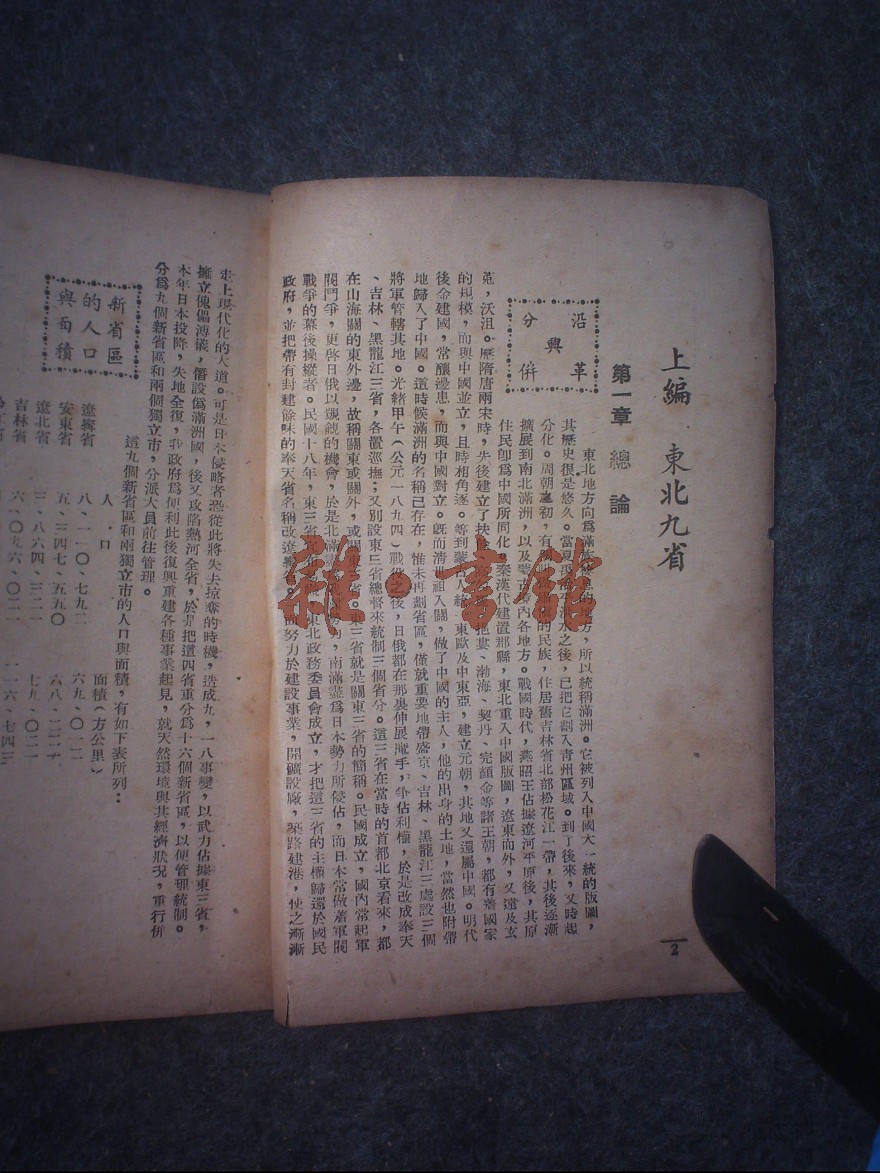 上編　東北九省
第一章　總論
沿革
與
分併
東北地方向爲滿族
方，所以統稱滿洲。它被列入中國大一統的版圖，
其歷史很是悠久。當夏禹
之後，已把它劃入青州區域。到了後來，又時起
分化。周朝之初，有
的民族，住居舊吉林省北部松花江一帶，其後逐漸
擴展到南北滿洲，以及蒙古
內各地方。戰國時代，燕昭王佔據遼河平原後，其原
住民卽爲中國所同化。秦漢代建置郡縣，東北重入中國版圖，遼東而外，又遠及玄
菟，沃沮。歷隋唐兩宋時，先後建立了扶
挹婁、渤海、契丹、完顏金等諸王朝，都有着國家
的規模，而與中國並立，且時相角逐。等到蒙古
東歐及中東亞，建立元朝，其地又還屬中國。明代
後金建國，常釀邊患，而與中國對立。旣而清世祖入關，做了中國的主人，他的出身的土地，當然也附帶
地歸入了中國。這時候滿洲的名稱已存在，惟未再劃省區，僅就重要地帶盛京、吉林、黑龍江三處設三個
將軍管轄其地。光緒甲午（公元一八九四）戰役之後，日俄都在那裏伸展魔手，爭佔利權，於是改成奉天
、吉林、黑龍江三省，各置巡撫；又別設東三省總督來統制三個省分。這三省在當時的首都北京看來，都
在山海關的東外邊，故稱關東或關外，或關東
省。東三省就是關東三省的簡稱。民國成立，國內常起軍
閥鬥爭，更啓日俄以覬覦的機會，於是北滿
南滿盡爲日本勢力所侵佔，而日本常做着軍閥
戰爭的幕後操縱者。民國十八年，東三省
東北政務委員會成立，才把這三省的主權歸還於國民
政府，並把帶有封建餘味的奉天省名稱改遼寧
努力於建設事業，開礦設廠，築路建港，使之漸漸
2
走上現代化的大道。可是日本侵略者恐從此將失去掠奪的時機，造成九，一八事變，以武力佔據東三省，
擁立傀儡溥儀，僭設僞滿洲國，後又攻陷熱河全省，於是把這四省重分爲十六個新省區，以便管理統制。
本年日本投降，失地全復，我政府爲便利此後復興重建各種事業起見，就天然環境與其經濟狀況，重行併
分爲九個新省區和兩個獨立市，分派大員前往管理。
新省區
的人口
與面積
這九個新省區和兩獨立市的人口與面積，有如下表所列：
人　口　面積（方公里）
遼寧省　八、一一〇、七九二　六九、〇一二
安東省　五、三四七、五五〇
遼北省　三、八六四、三二一　七九、〇二一
吉林省　六、〇九六、〇二一
雜·書館